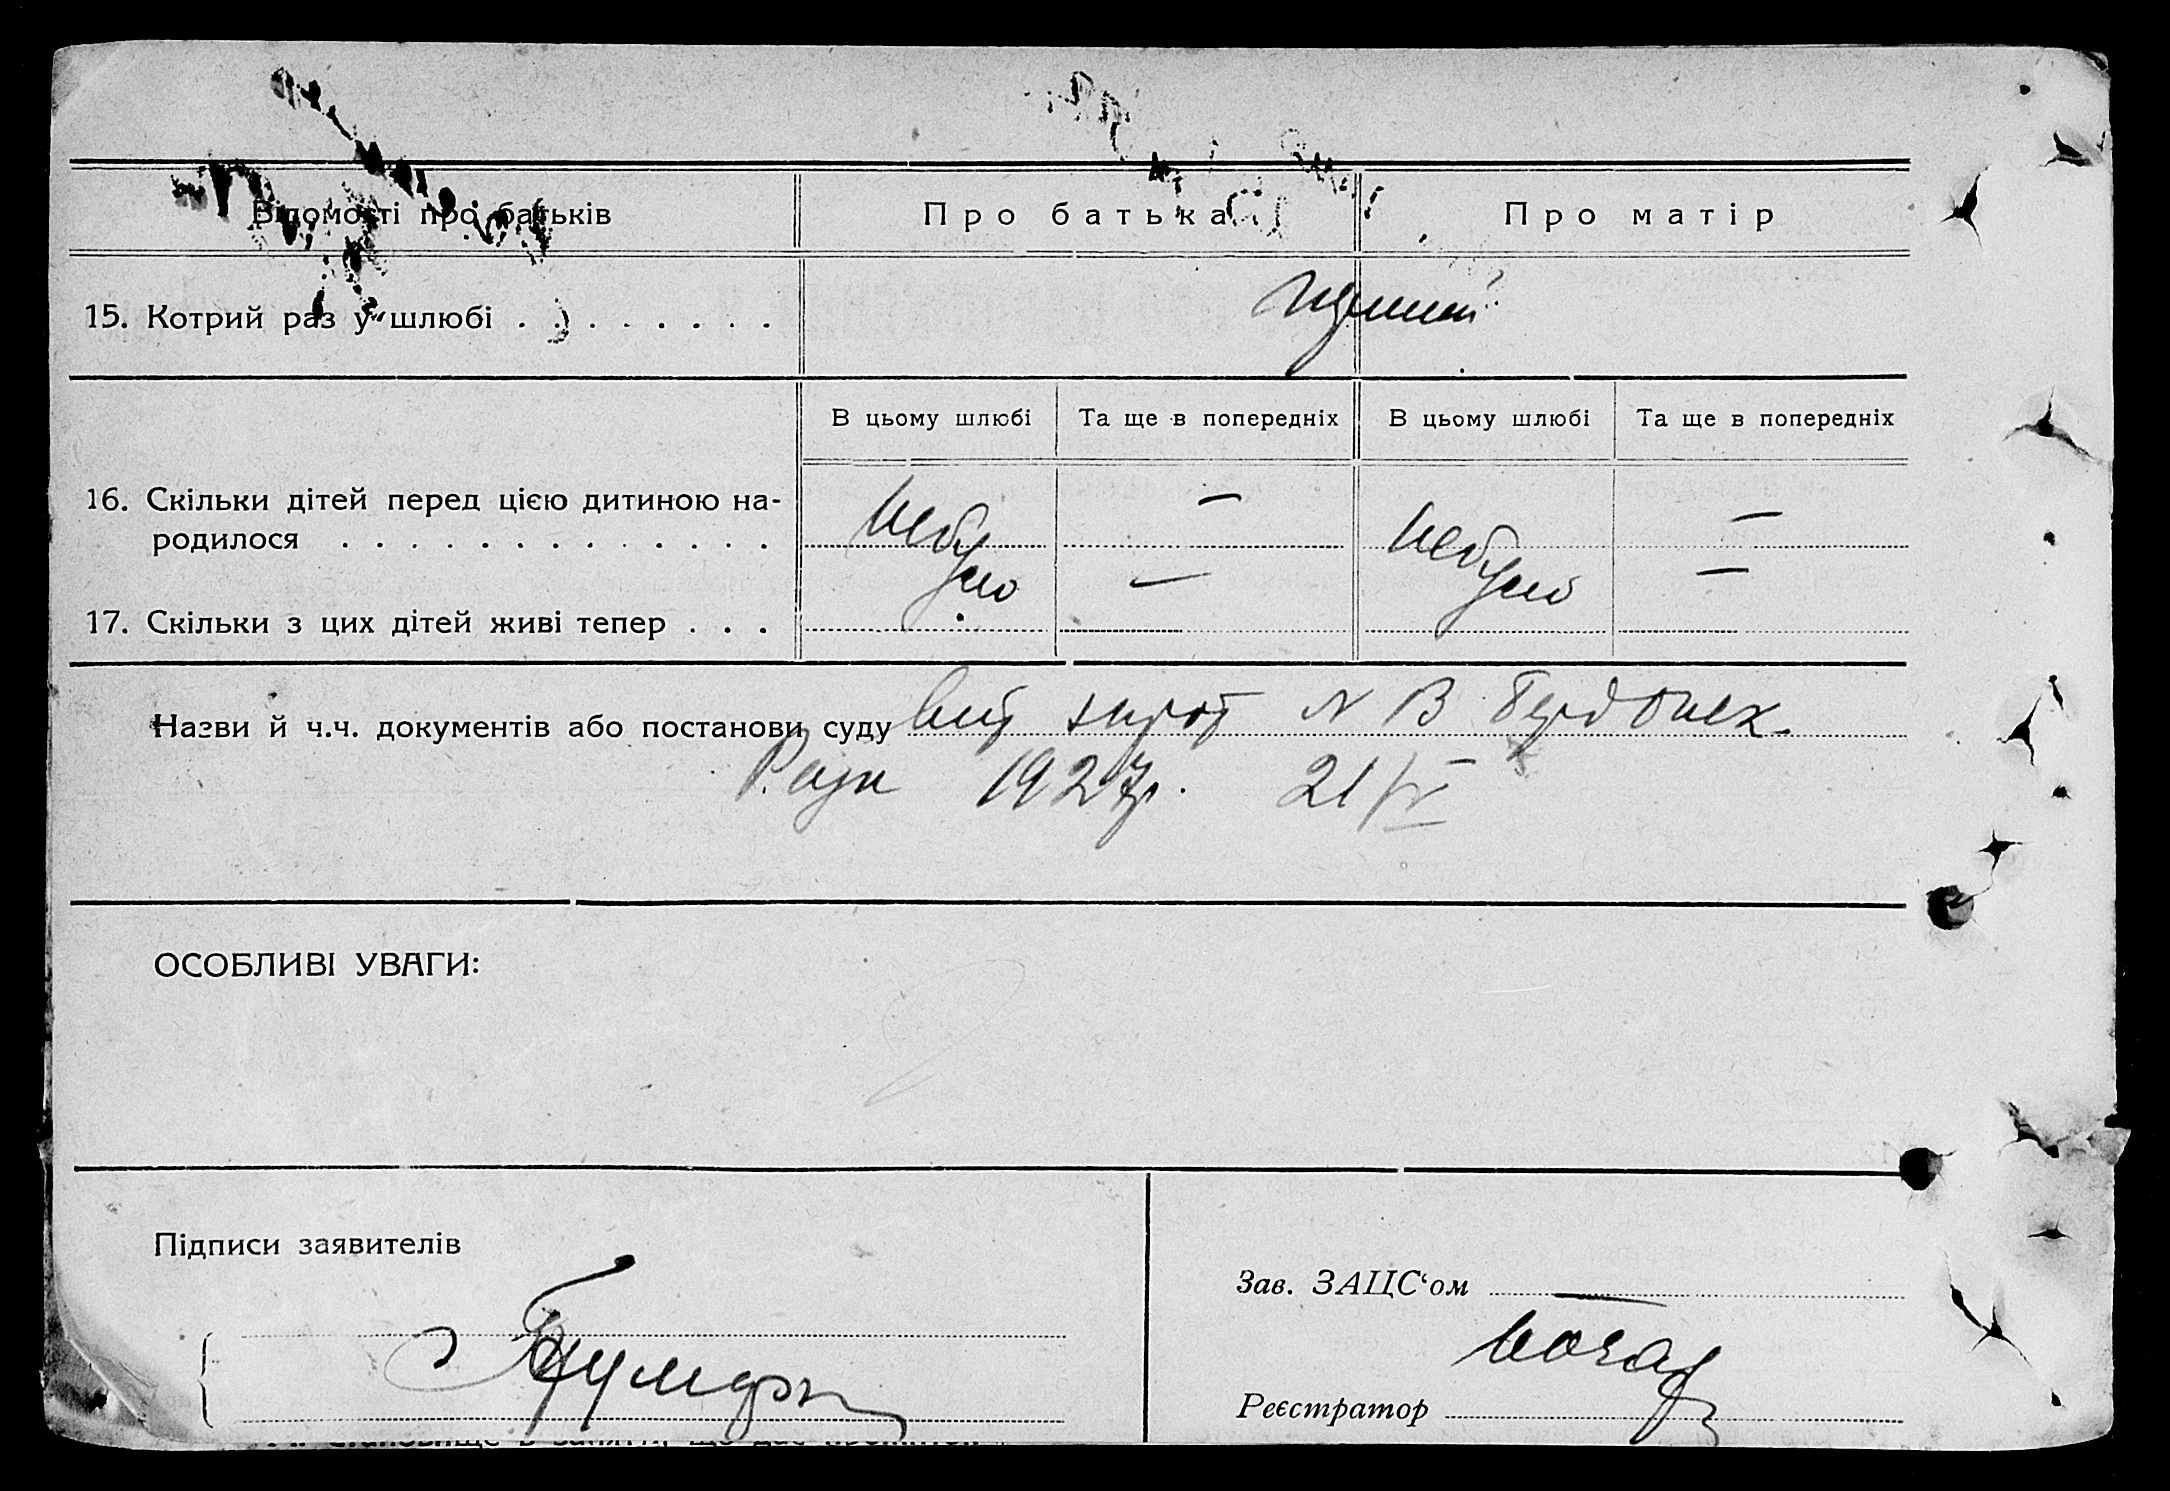 Відомості про батьків
Про батька
Про матір
15. Котрий раз у шлюбі . . . . . . . .
В цьому шлюбі
Та ще в попередніх
В цьому шлюбі
Та ще в попередніх
16. Скільки дітей перед цією дитиною на-
родилося . . . . . . . . . . . . .
небу
—
небу
—
ло
—
ло
—
17. Скільки з цих дітей живі тепер . . .
Назви й ч.ч. документів або постанови суду
1927р. 21/IV
ОСОБЛИВІ УВАГИ:
Підписи заявителів
Зав. ЗАЦС‘ом —
Реєстратор